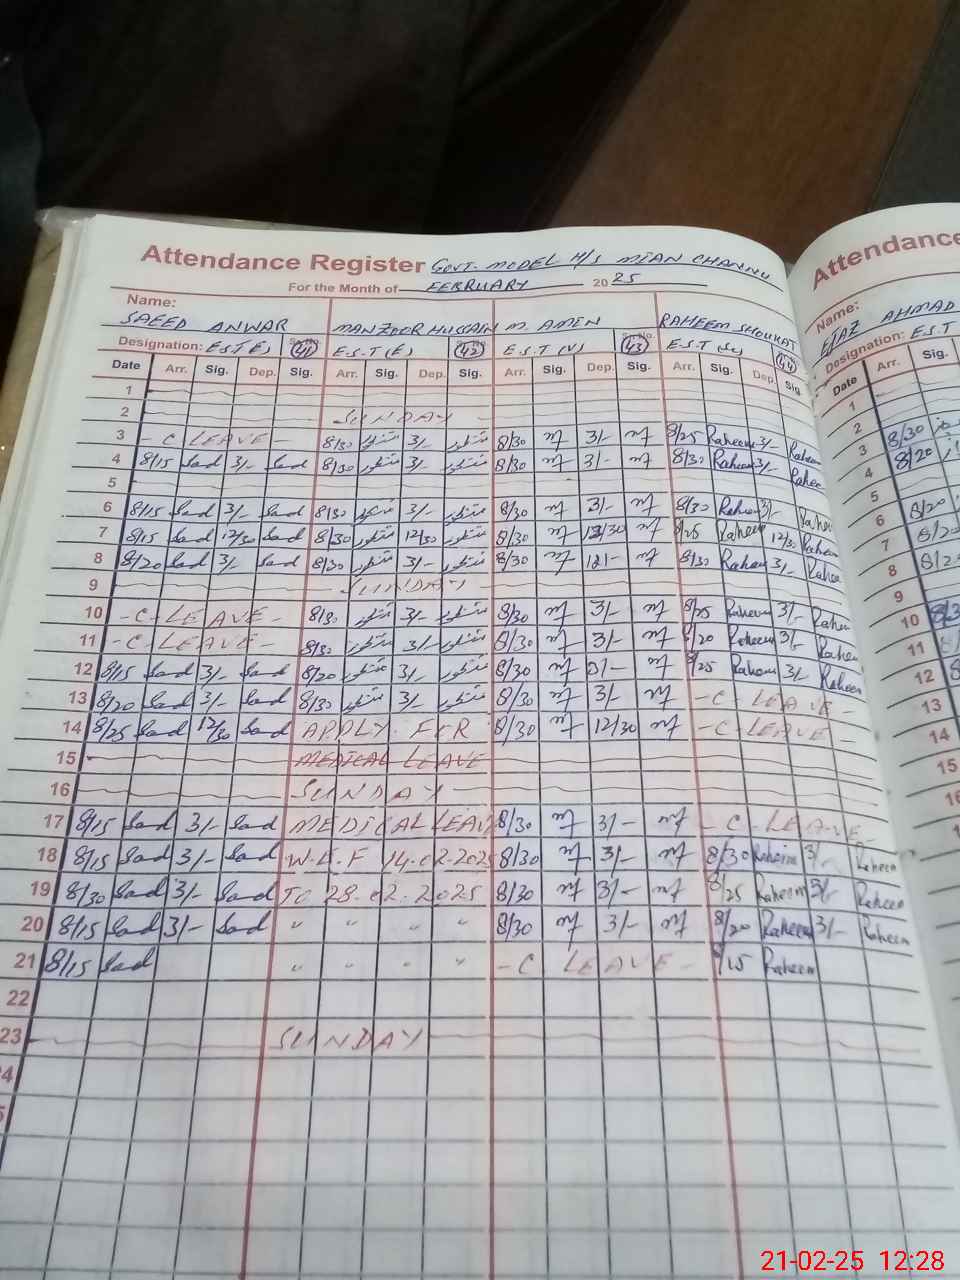 Attendance Register GOVT. MODEL H/S MIAN CHANNU
For the Month of FEBRUARY 2025
Name:
SAEED ANWAR MANZOOR HUSSAIN M. AMEN RAHEEM SHOUKAT
Designation: E.S.T(E) Sr. No. 41 E.S.T (E) 42 E.S.T (V) 43 E.S.T (Sc) 44
Date Arr. Sig. Dep. Sig. Arr. Sig. Dep. Sig. Arr. Sig. Dep. Sig. Arr. Sig. Dep. Sig.
1
2 SUNDAY
3 - C LEAVE - 8/30 منظور 3/- منظور 8/30 3/- 8/25 Raheem 3/- Raheem
4 8/15 Sad 3/- Sad 8/30 منظور 3/- منظور 8/30 3/- 8/30 Raheem 3/- Raheem
5
6 8/15 Sad 3/- Sad 8/30 منظور 3/- منظور 8/30 3/- 8/30 Raheem 3/- Raheem
7 8/15 Sad 12/30 Sad 8/30 منظور 12/30 منظور 8/30 12/30 8/25 Raheem 12/30 Raheem
8 8/20 Sad 3/- Sad 8/30 منظور 3/- منظور 8/30 8/30 Raheem 3/- Raheem
9 SUNDAY
10 - C - LEAVE - 8/30 منظور 3/- منظور 8/30 3/- 8/25 Raheem 3/- Raheem
11 - C - LEAVE - 8/30 منظور 3/- منظور 8/30 3/- 8/20 Raheem 3/- Raheem
12 8/15 Sad 3/- Sad 8/20 منظور 3/- منظور 8/30 3/- 8/25 Raheem 3/- Raheem
13 8/20 Sad 3/- Sad 8/30 منظور 3/- منظور 8/30 3/- - C LEAVE -
14 8/25 Sad 12/30 Sad APPLY FOR 8/30 12/30 - C - LEAVE -
15 MEDICAL LEAVE
16 SUNDAY
17 8/15 Sad 3/- Sad MEDICAL LEAVE 8/30 3/- - C - LEAVE -
18 8/15 Sad 3/- Sad W.E.F 14.02.2025 8/30 3/- 8/30 Raheem 3/- Raheem
19 8/30 Sad 3/- Sad TO 28.02.2025 8/30 3/- 8/25 Raheem 3/- Raheem
20 8/15 Sad 3/- Sad " " " " 8/30 3/- 8/20 Raheem 3/- Raheem
21 8/15 Sad " " " " - C LEAVE - 8/15 Raheem
22
23 SUNDAY
Attendance
Name:
EJAZ AHMAD
Designation: E.S.T
Date Arr. Sig.
1
2
3 8/30
4 8/20
5
6 8/20
7 8/20
8
9
10
11
12
13
14
15
21-02-25 12:28